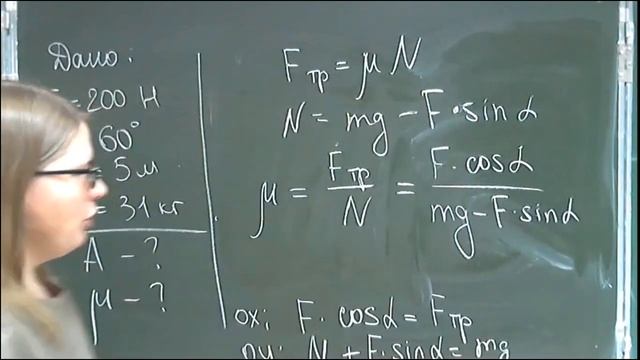 Дано:
= 200 Н
60°
= 5 м
= 31 кг
A - ?
μ - ?
Fтр = μ N
N = mg - F · sin α
μ = Fтр / N = F · cos α / mg - F · sin α
ox: F · cos α = Fтр
oy: N + F · sin α = mg